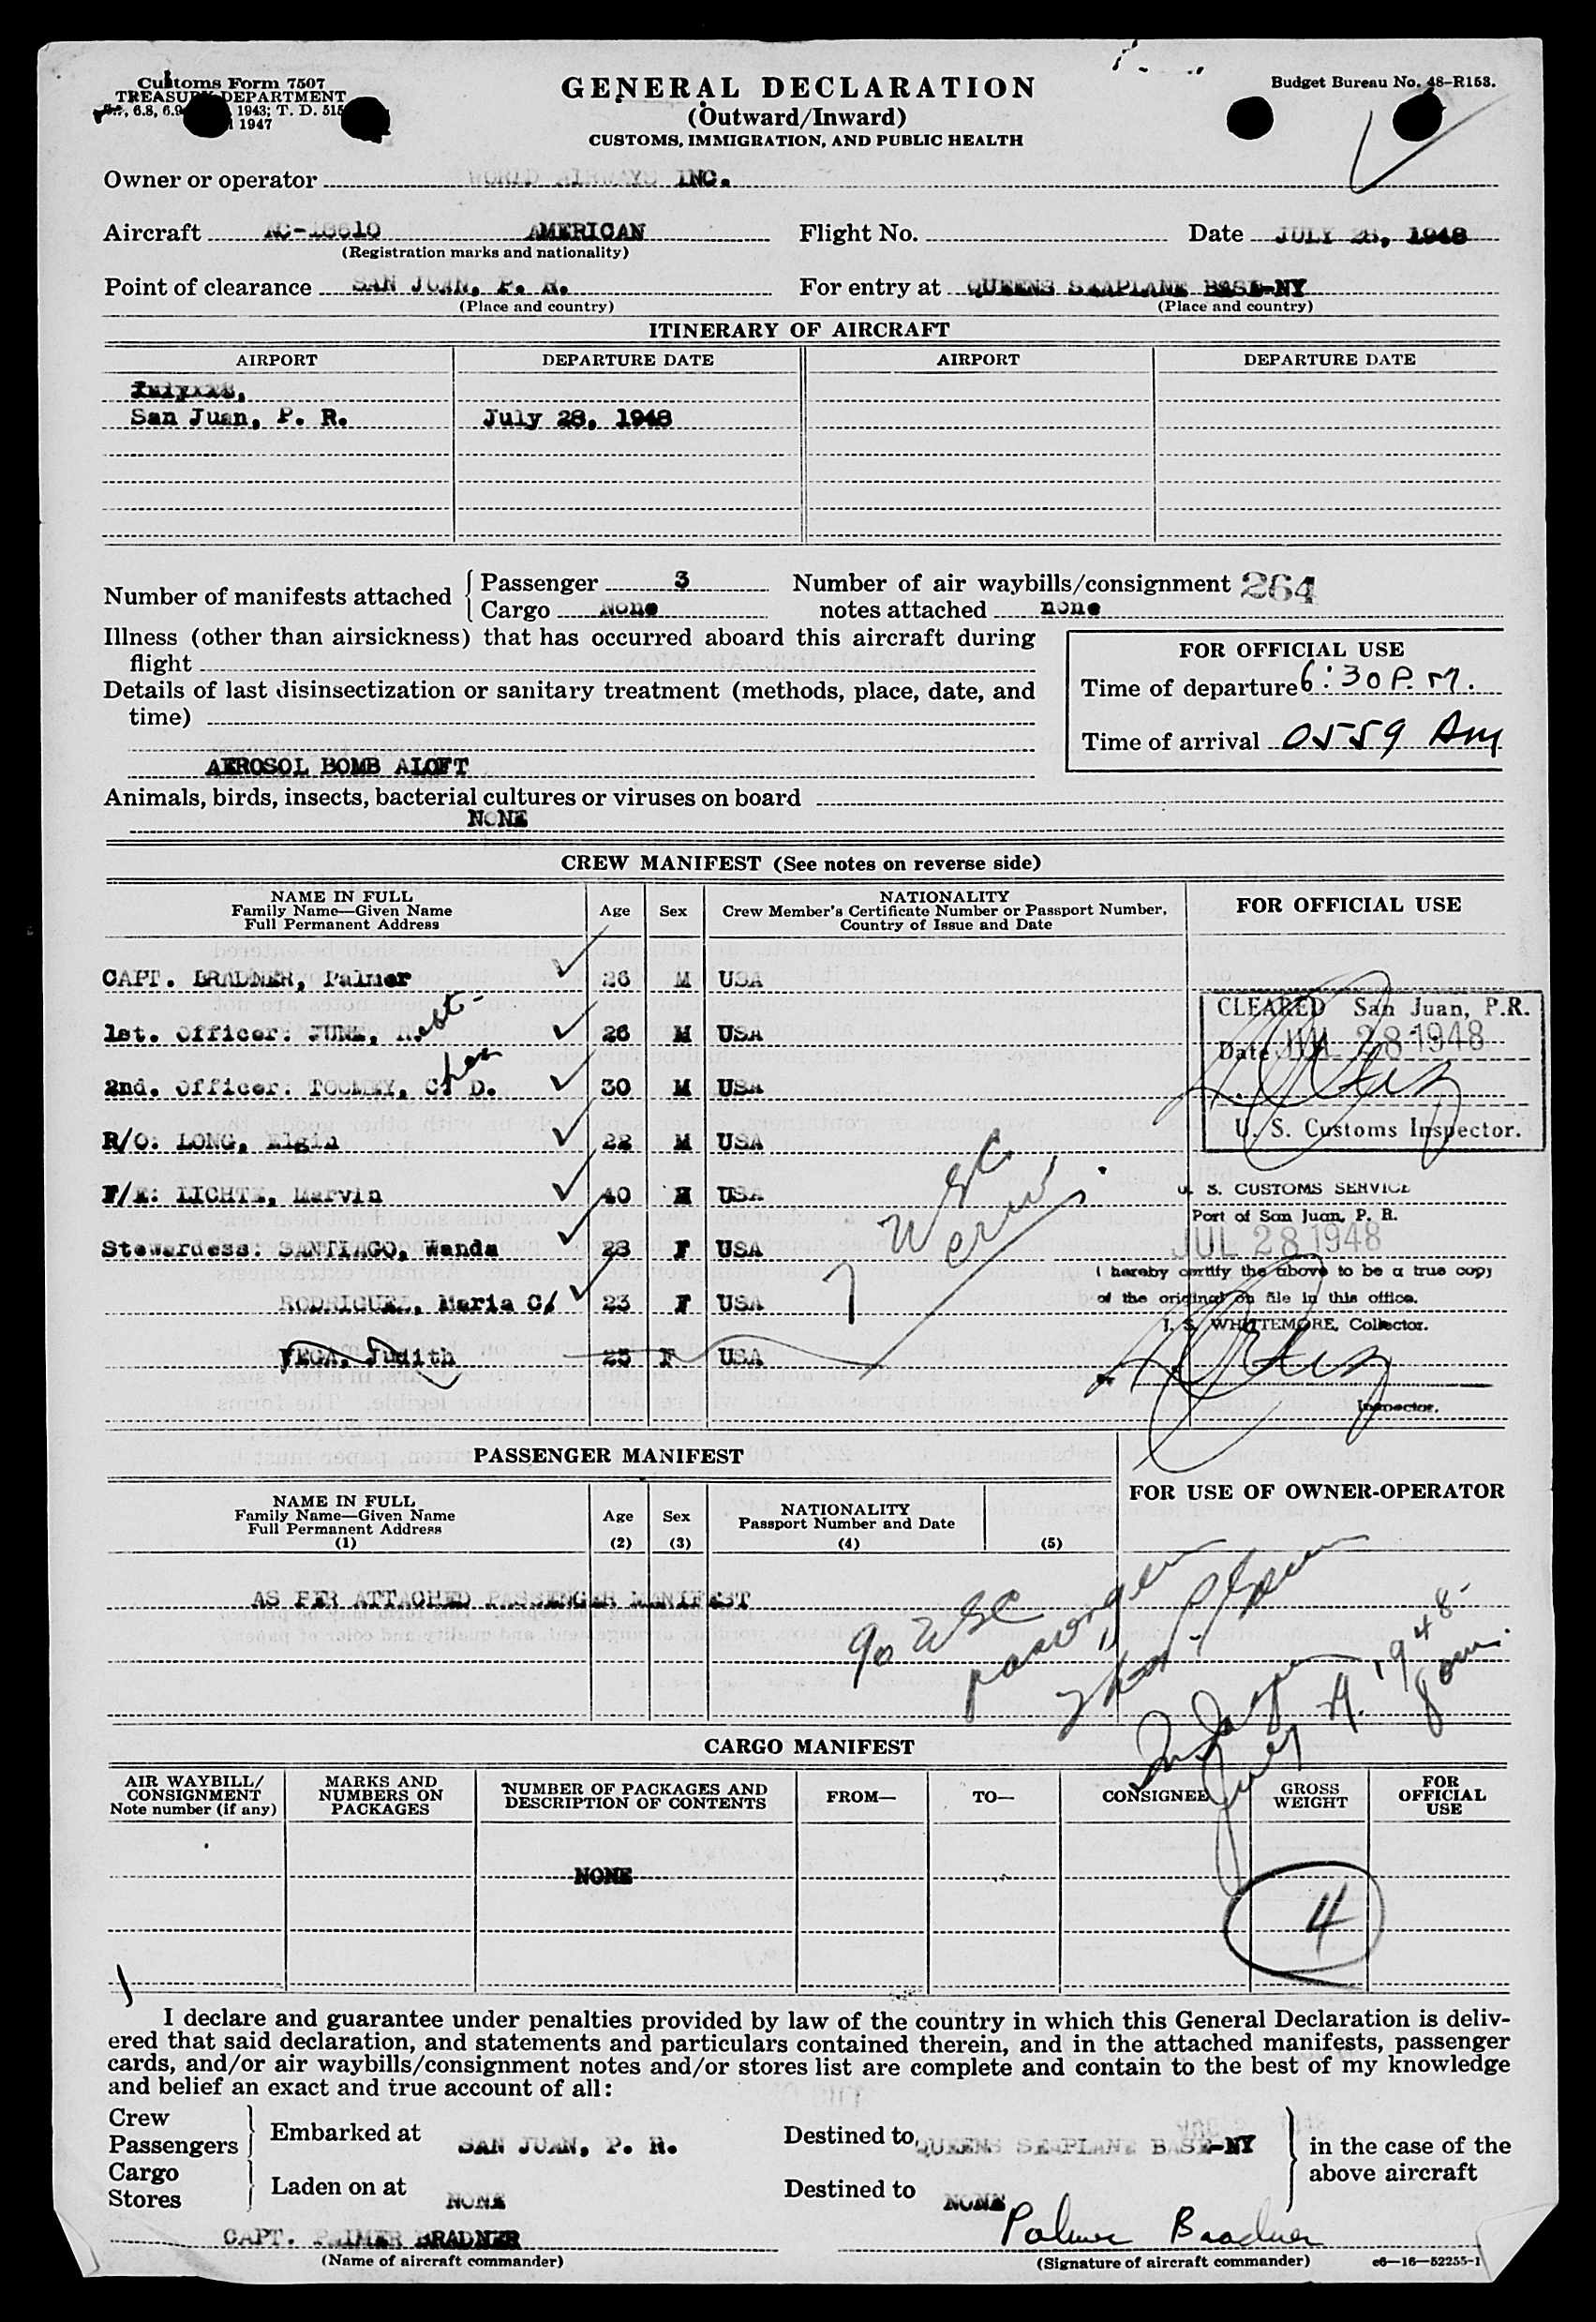 Customs Form 7507
TREASURY DEPARTMENT
6.8, 6.9 1943; T. D. 515
1947
GENERAL DECLARATION
(Outward/Inward)
CUSTOMS, IMMIGRATION, AND PUBLIC HEALTH
Budget Bureau No. 48-R153.
Owner or operator WORLD AIRWAYS INC.
Aircraft AMERICAN Flight No. Date JULY 28, 1948
(Registration marks and nationality)
Point of clearance SAN JUAN, P. R. For entry at QUEENS SEAPLANE BASE-NY
(Place and country) (Place and country)
ITINERARY OF AIRCRAFT
AIRPORT DEPARTURE DATE AIRPORT DEPARTURE DATE
San Juan, P. R. July 28, 1948
Number of manifests attached { Passenger 3 Number of air waybills/consignment 264
Cargo None notes attached none
Illness (other than airsickness) that has occurred aboard this aircraft during
flight
FOR OFFICIAL USE
Details of last disinsectization or sanitary treatment (methods, place, date, and
time)
Time of departure 6:30 P.M.
Time of arrival 0559 Am
AEROSOL BOMB ALOFT
Animals, birds, insects, bacterial cultures or viruses on board
NONE
CREW MANIFEST (See notes on reverse side)
NAME IN FULL
Family Name—Given Name
Full Permanent Address
Age Sex
NATIONALITY
Crew Member's Certificate Number or Passport Number,
Country of Issue and Date
FOR OFFICIAL USE
CAPT. BRADNER, Palmer 26 M USA
1st. Officer: JUNE, 26 M USA
2nd. Officer: TOOMEY, C. D. 30 M USA
R/O: LONG, Elgin 22 M USA
F/E: LICHTE, Marvin 40 M USA
Stewardess: SANTIAGO, Wanda 28 F USA
RODRIGUEZ, Maria C/ 23 F USA
VEGA, Judith 25 F USA
7 USC
CLEARED San Juan, P.R.
Date JUL 28 1948
U. S. Customs Inspector.
U. S. CUSTOMS SERVICE
Port of San Juan, P. R.
JUL 28 1948
I hereby certify the above to be a true copy
of the original on file in this office.
J. S. WHITTEMORE, Collector.
Inspector.
PASSENGER MANIFEST
FOR USE OF OWNER-OPERATOR
NAME IN FULL
Family Name—Given Name
Full Permanent Address
(1)
Age
(2)
Sex
(3)
NATIONALITY
Passport Number and Date
(4) (5)
AS PER ATTACHED PASSENGER MANIFEST
90 USC
1948
CARGO MANIFEST
AIR WAYBILL/
CONSIGNMENT
Note number (if any)
MARKS AND
NUMBERS ON
PACKAGES
NUMBER OF PACKAGES AND
DESCRIPTION OF CONTENTS
FROM—
TO—
CONSIGNEE
GROSS
WEIGHT
FOR
OFFICIAL
USE
NONE
4
I declare and guarantee under penalties provided by law of the country in which this General Declaration is deliv-
ered that said declaration, and statements and particulars contained therein, and in the attached manifests, passenger
cards, and/or air waybills/consignment notes and/or stores list are complete and contain to the best of my knowledge
and belief an exact and true account of all:
Crew
Passengers } Embarked at SAN JUAN, P. R. Destined to QUEENS SEAPLANE BASE-NY
Cargo
Stores } Laden on at NONE Destined to NONE
in the case of the
above aircraft
CAPT. PALMER BRADNER Palmer Bradner
(Name of aircraft commander) (Signature of aircraft commander) c6—16—52255-1